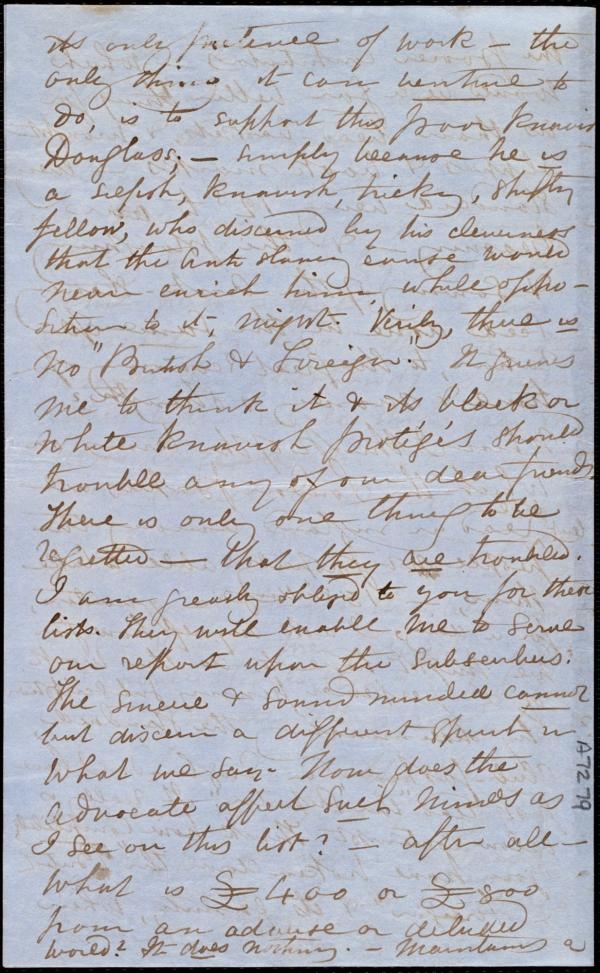 its only pretence of work – the
only thing it can venture to
do, is to support this poor knavish
Douglass; – simply because he is
a selfish, knavish, tricky, shifty
fellow, who discerned by his cleverness
that the Anti slavery cause would
never enrich him, while oppo-
sition to it, might. Verily, there is
no "British & Foreign." It grieves
me to think it & its black or
white knavish protégés should
trouble any of our dear friends.
There is only one thing to be
regretted – that they are troubled.
I am greatly obliged to you for these
lists. They will enable me to serve
our report upon the subscribers.
The sincere & sound minded cannot
but discern a different spirit in
what we say. How does the
advocate affect such minds as
I see on this list? – after all –
What is £400 or £800
from an adverse or deluded
world? It does nothing. – Maintains a
A7279